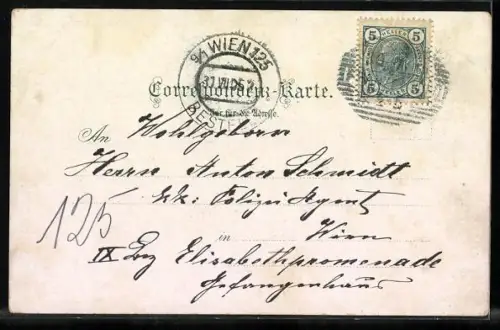 9/1 WIEN 125
BESTELLT
5 5
5 5
Correspondenz-Karte.
Nur für die Adresse.
An Wohlgeborn
Herrn Anton Schmidt
k.k. Polizei Agent
in Wien
125
IX Bez Elisabethpromenade
Gefangenhaus